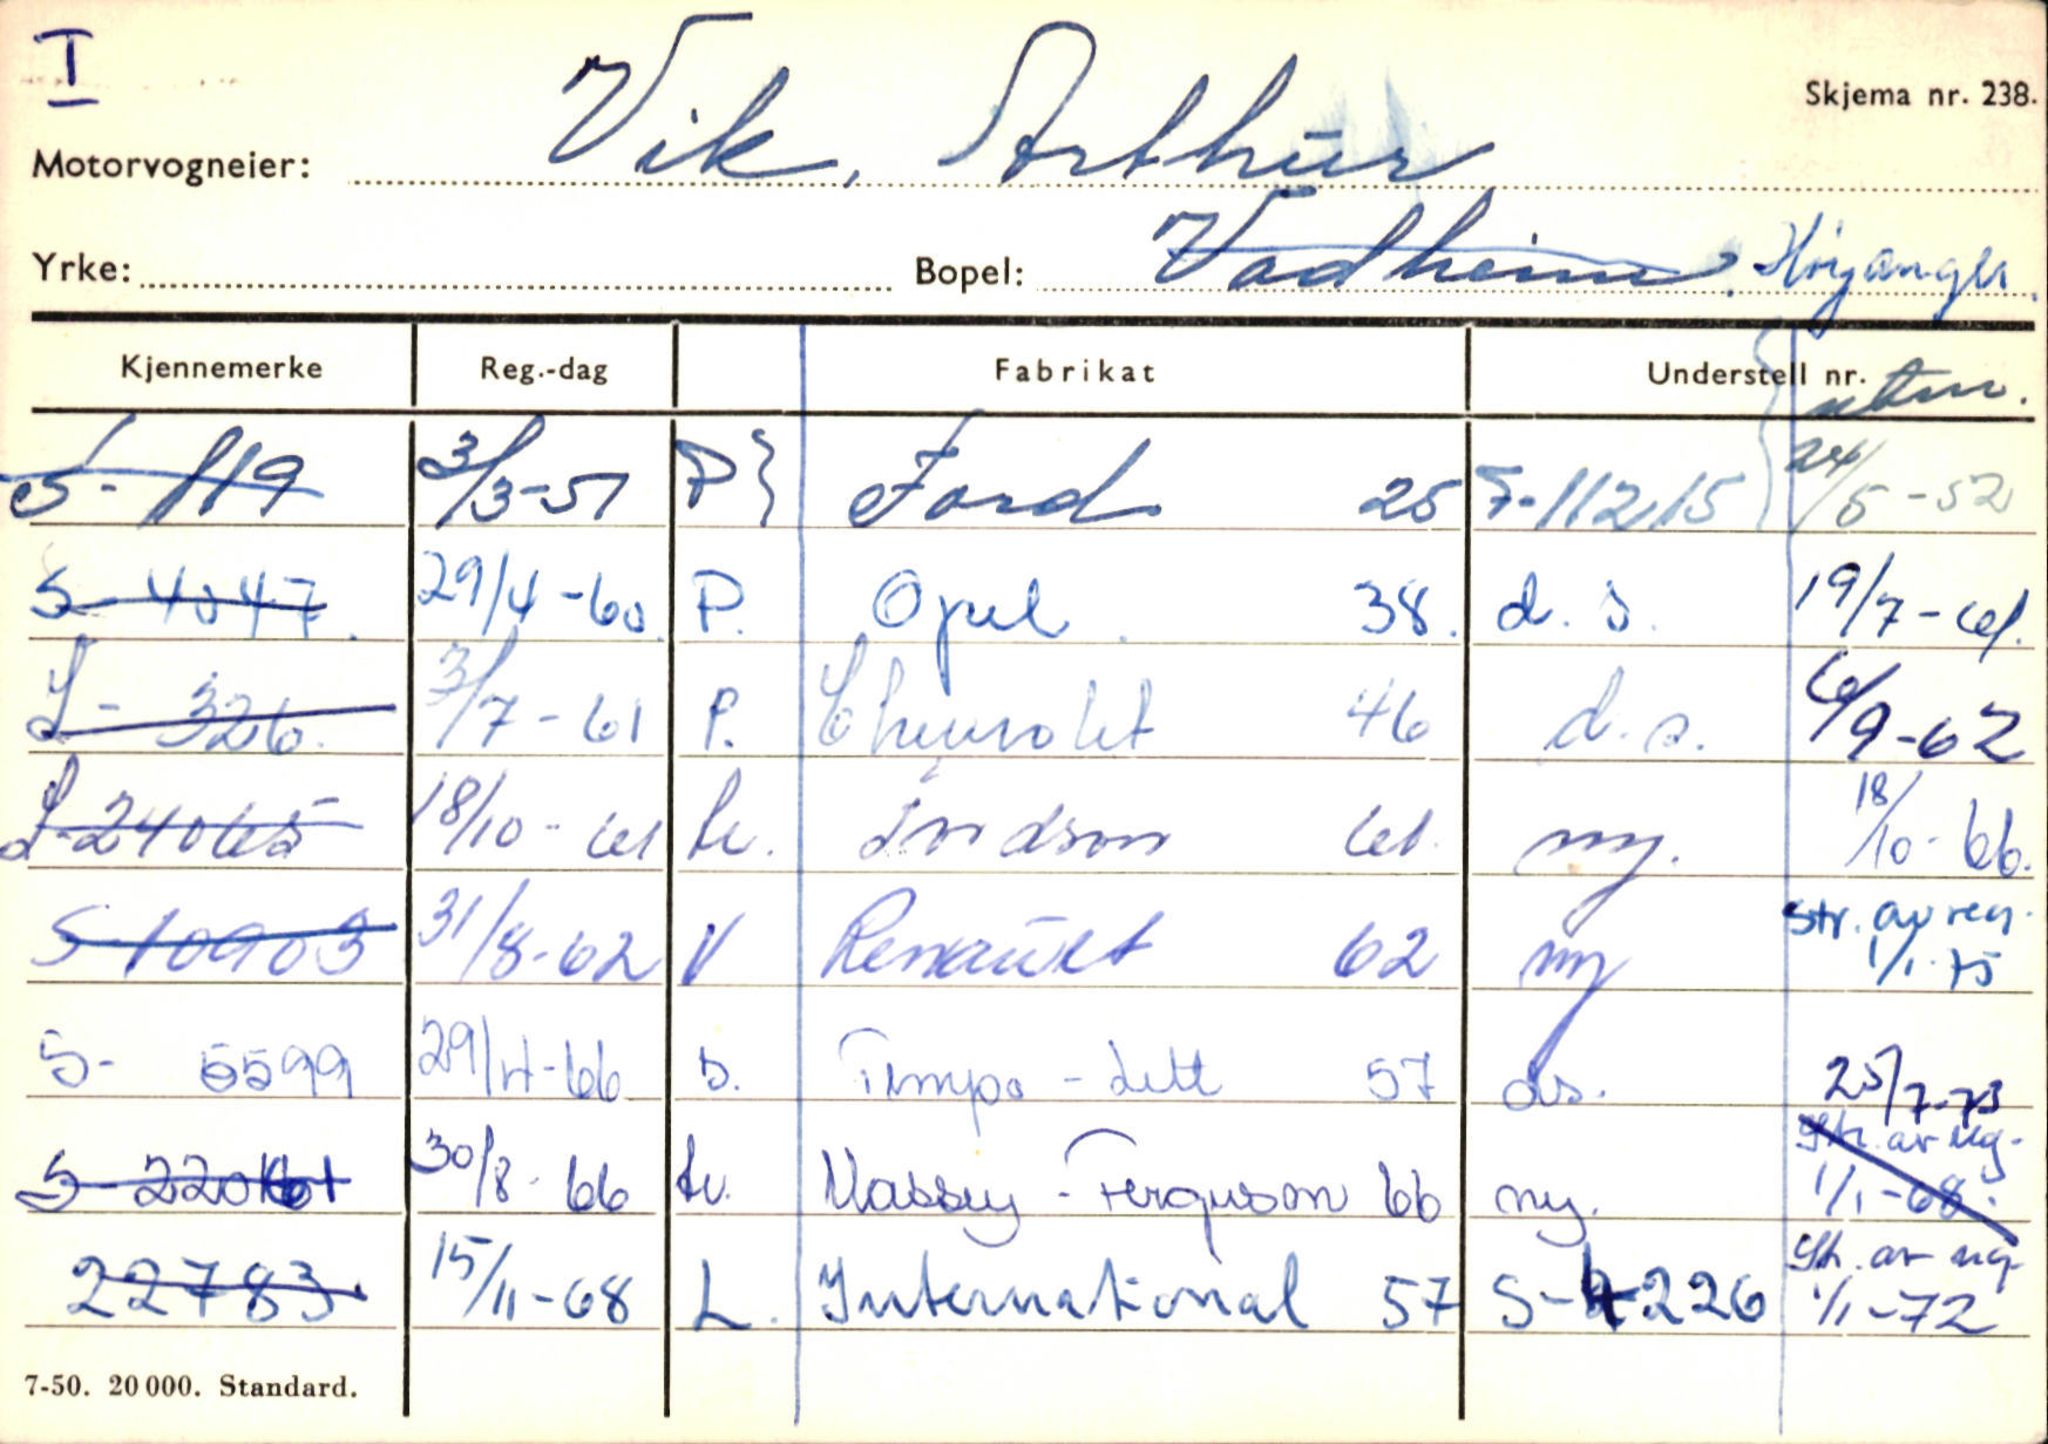 I
Skjema nr. 238.
Motorvogneier: Vik, Arthur
Yrke: Bopel: Vadheim. Høyanger.
Kjennemerke Reg.-dag Fabrikat Understell nr.
S- 119 3/3-51 P} Ford 25 F-11215 24/5-52
S- 4047. 29/4-60. P. Opel 38. d.s. 19/7-61.
S- 326. 3/7-61 P. Chevrolet 46 d.s. 6/9-62
S-24065 18/10-61 tr. 61. ny. 18/10-66.
S-10903 31/8-62 V Renault 62 ny str. av reg. 1/1-75
S- 5599 29/4-66 Tempo-Lett 57 ds. 25/7-73
S- 30/8-66 tr. Massey-Ferguson 66 ny. Str. av reg. 1/1-68.
22783. 15/11-68 L. International 57 S-4226 Str. av reg. 1/1-72
7-50. 20 000. Standard.